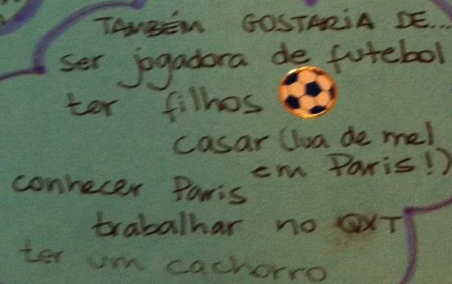 TAMBÉM GOSTARIA DE...
ser jogadora de futebol
ter filhos
casar (lua de mel
em Paris!)
conhecer Paris
trabalhar no QXT
ter um cachorro